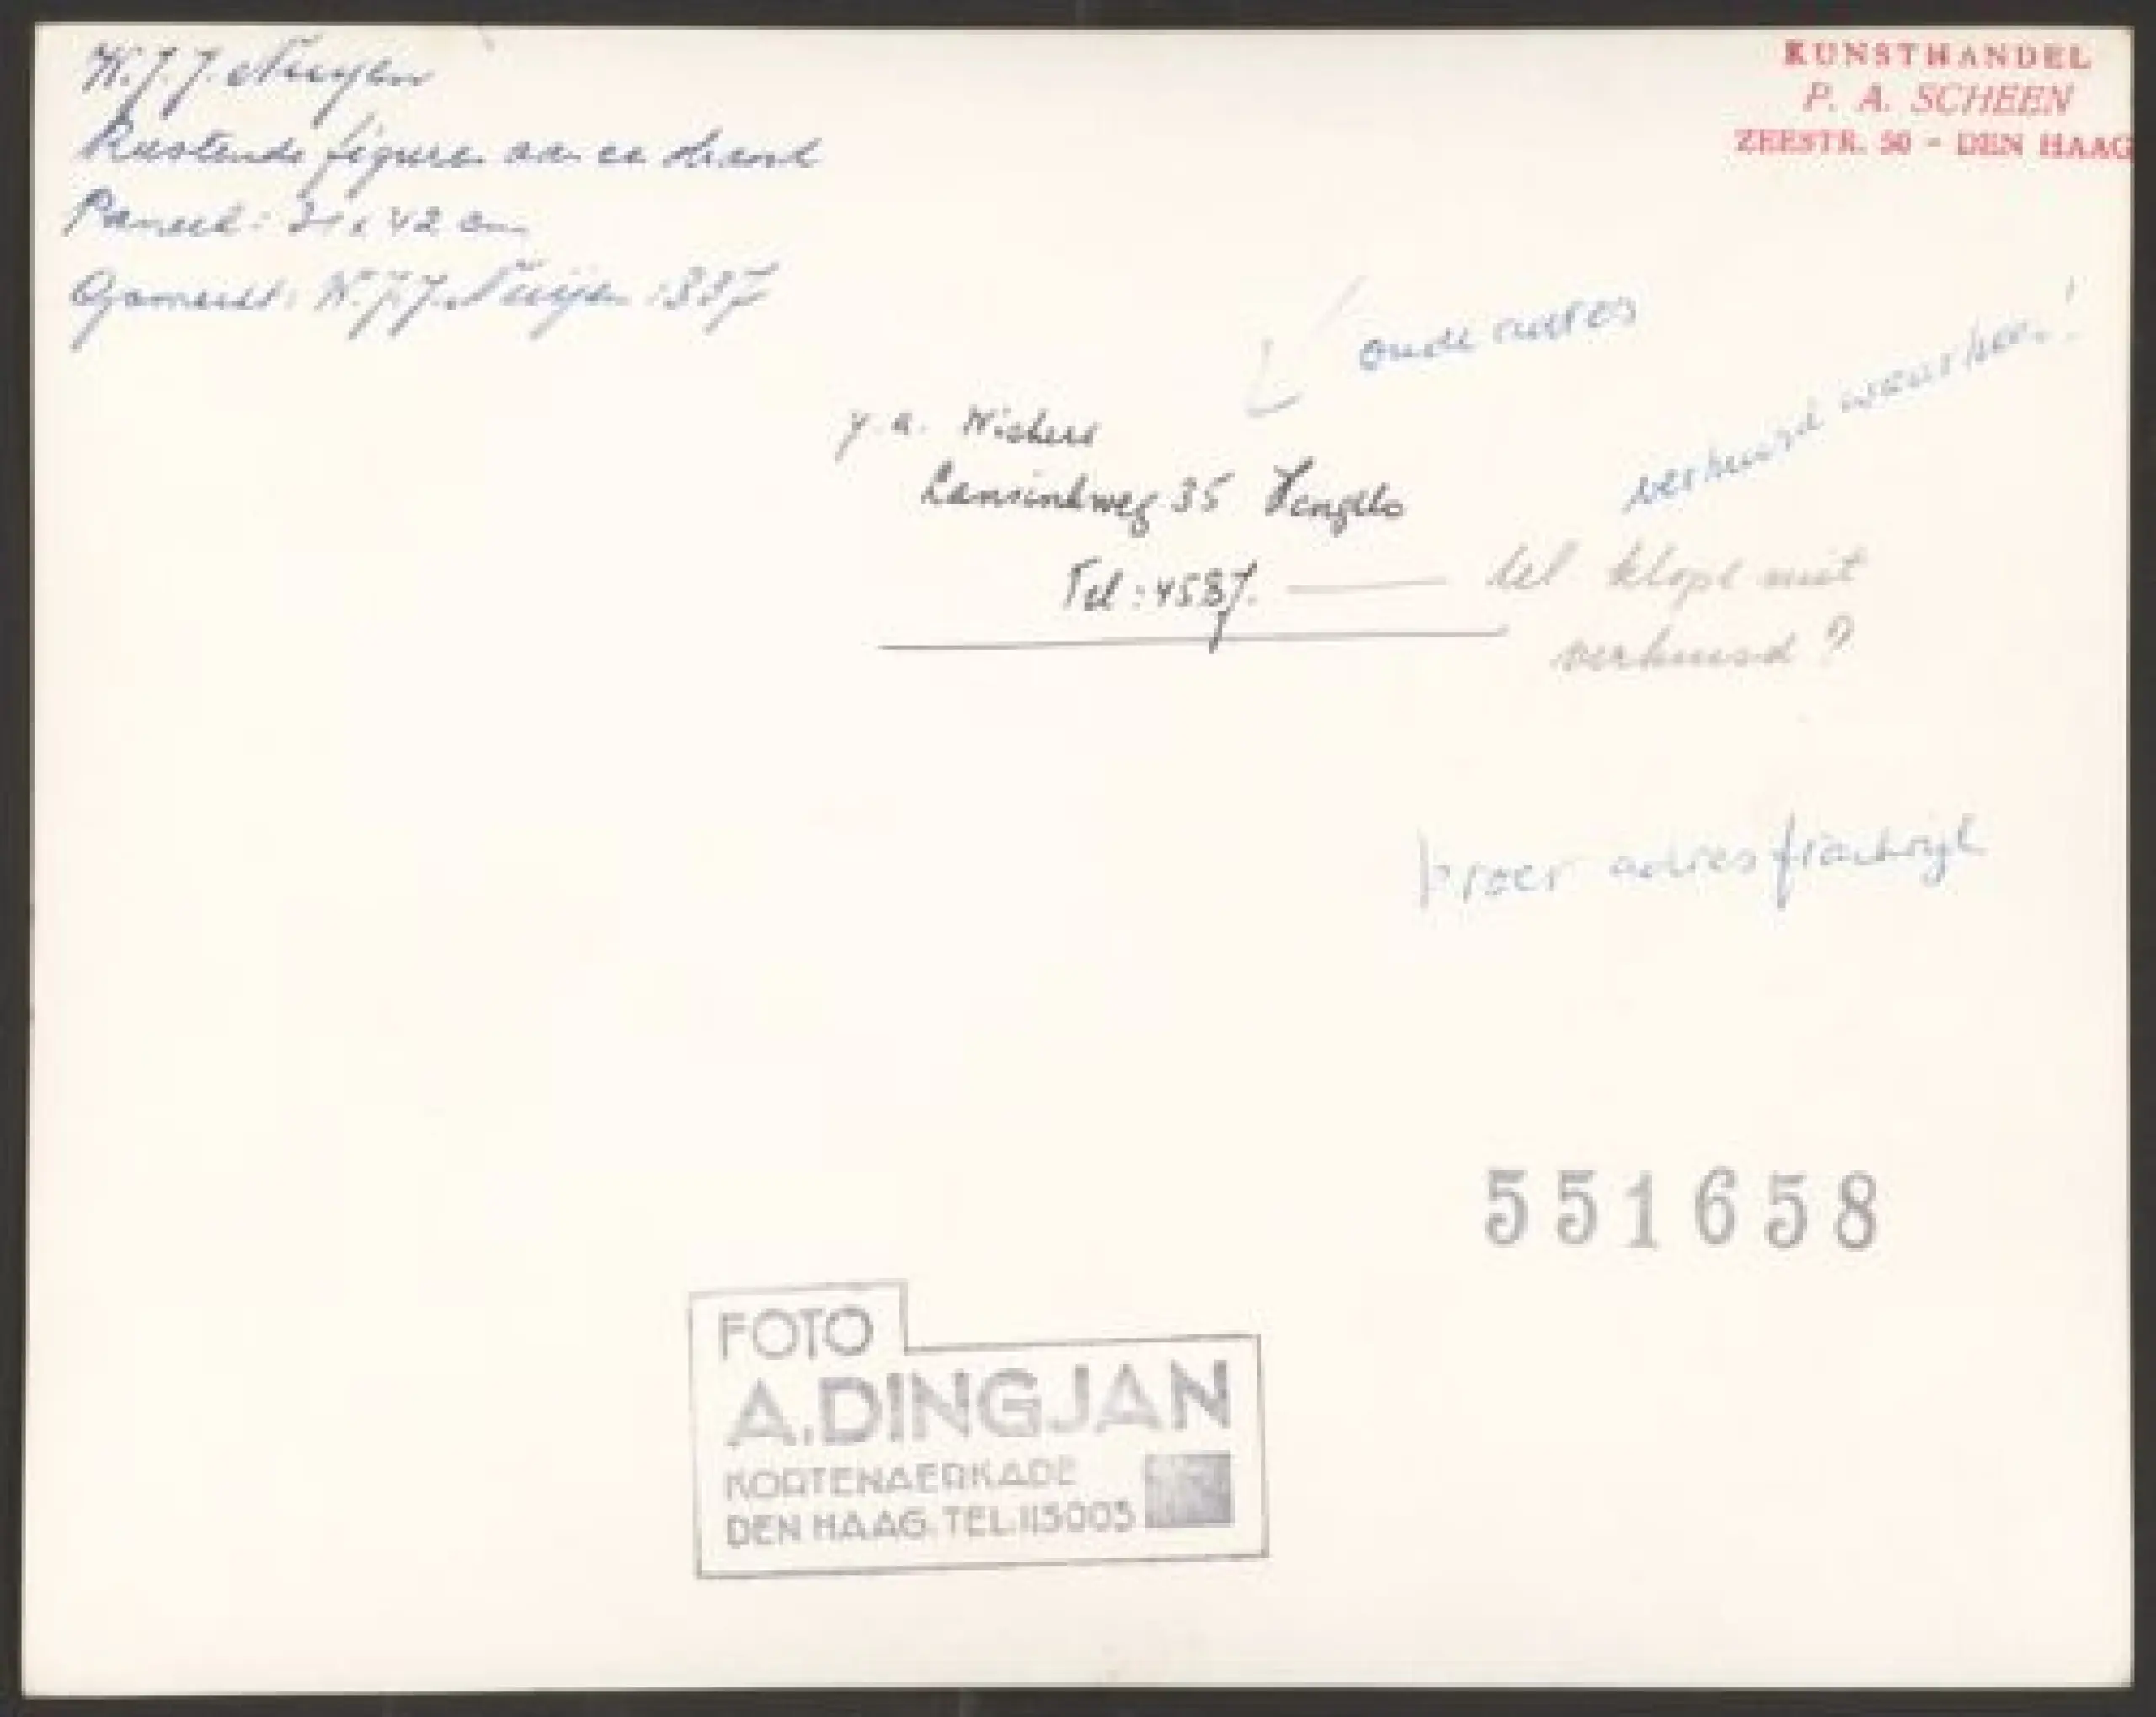 W.J.J. Nuyen
Rustende figuren aan een strand
Paneel: 31 x 42 cm
Gemerkt: W.J.J. Nuijen 1837
KUNSTHANDEL
P. A. SCHEEN
ZEESTR. 50 - DEN HAAG
oude adres
verhuisd waarheen!
Lansinkweg 35 Hengelo
Tel: 4587.
tel klopt niet
verhuisd?
adres frankrijk
551658
FOTO
A.DINGJAN
KORTENAERKADE
DEN HAAG. TEL.115003